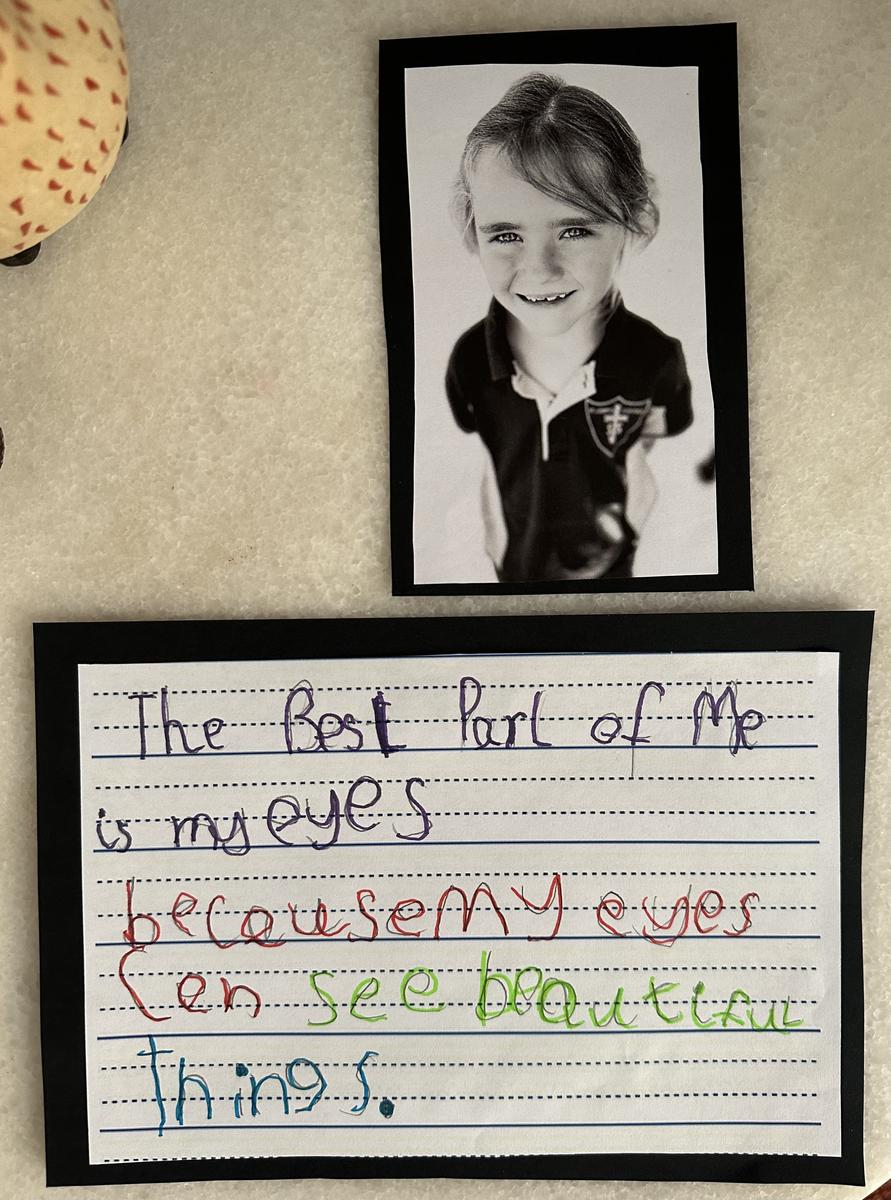 The Best Part of Me
is my eyes
because my eyes
Cen see beautiful
things.